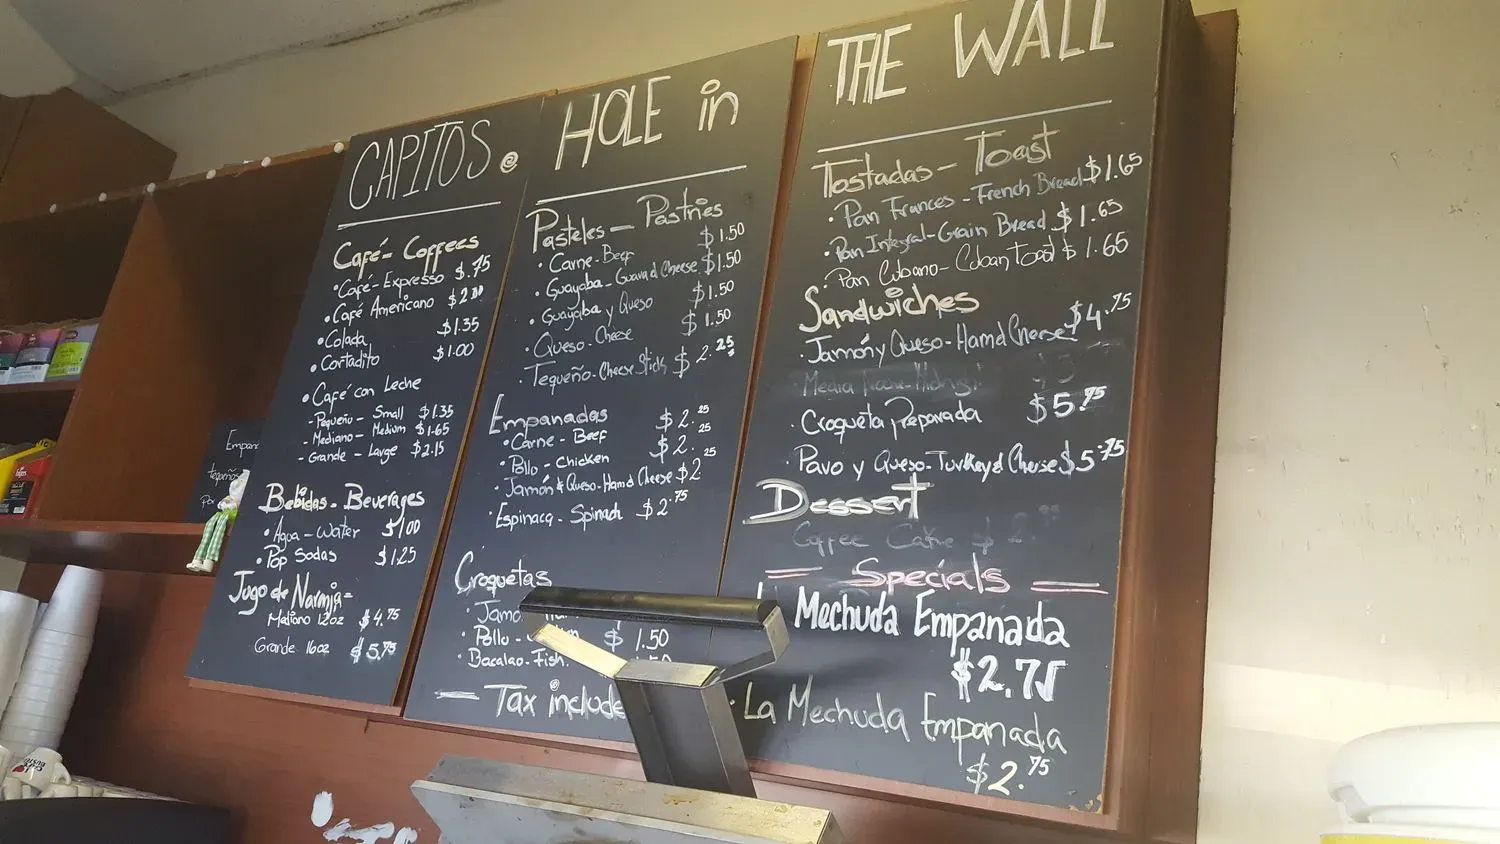 CAPITOS.
Café - Coffees
• Café - Expresso $.75
• Café Americano $2.00
• Colada $1.35
• Cortadito $1.00
• Café con Leche
- Pequeño - Small $1.35
- Mediano - Medium $1.65
- Grande - Large $2.15
Bebidas - Beverages
• Agua - Water $1.00
• Pop Sodas $1.25
Jugo de Naranja -
Mediano 12oz $4.75
Grande 16oz $5.75
HOLE in
Pasteles - Pastries
• Carne - Beef $1.50
• Guayaba - Guava & Cheese $1.50
• Guayaba y Queso $1.50
• Queso - Cheese $1.50
• Tequeño - Cheese Stick $2.25
Empanadas
• Carne - Beef $2.25
• Pollo - Chicken $2.25
• Jamón & Queso - Ham & Cheese $2.25
• Espinaca - Spinach $2.75
Croquetas
• Jamo
• Pollo - $1.50
• Bacalao - Fish .50
— Tax include
THE WALL
Tostadas - Toast
• Pan Frances - French Bread $1.65
• Pan Integral - Grain Bread $1.65
• Pan Cubano - Cuban Toast $1.65
Sandwiches
• Jamón y Queso - Ham & Cheese $4.75
Media Noche - Midnight $5
• Croqueta preparada $5.75
• Pavo y Queso - Turkey & Cheese $5.75
Dessert
Coffee Cake $2.
— Specials —
Mechuda Empanada
$2.75
• La Mechuda Empanada
$2.75
Empana
tequeños
Por